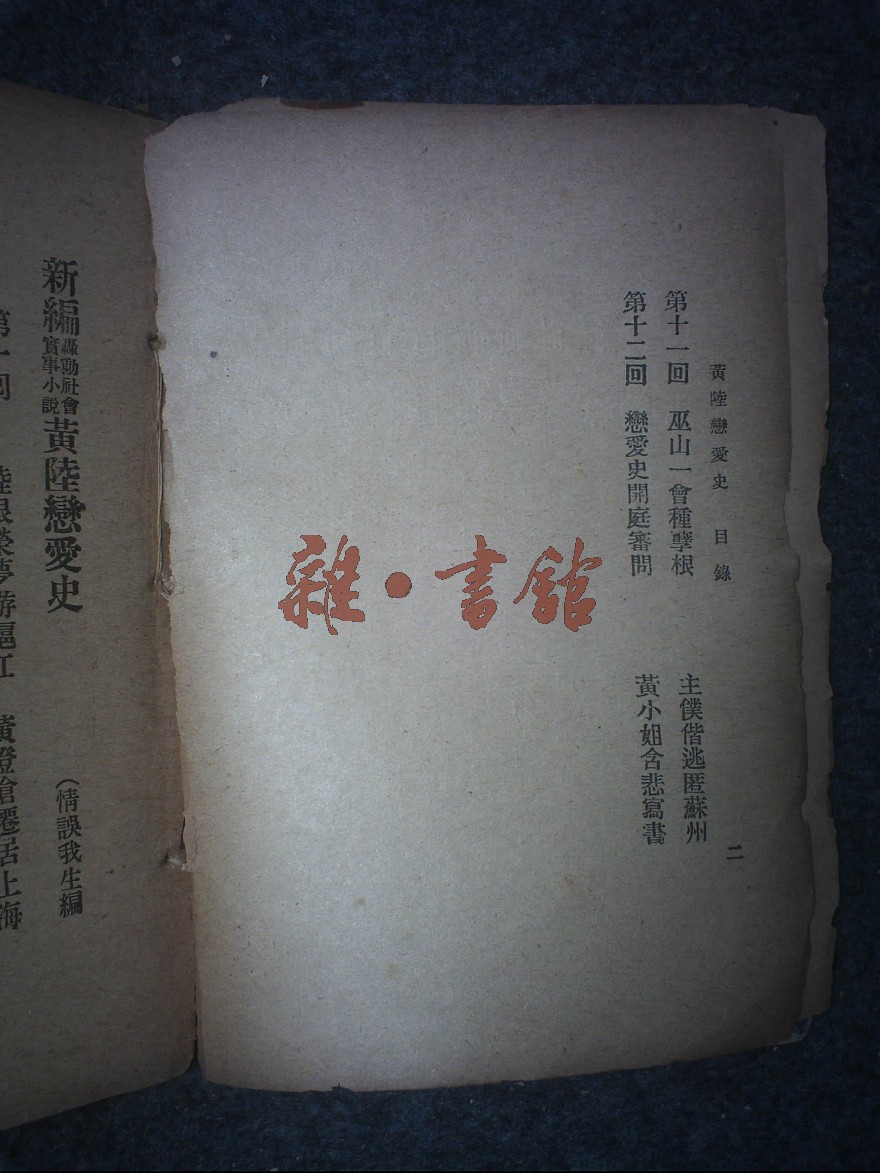 黃陸戀愛史 目錄
二
第十一回 巫山一會種孽根 主僕偕逃匿蘇州
第十二回 戀愛史開庭審問 黃小姐含悲寫書
雜·書館
新編轟動社會實事小說黃陸戀愛史 (情誤我生編
第一回 陸根榮夢游滬江 黃澄滄遷居上海